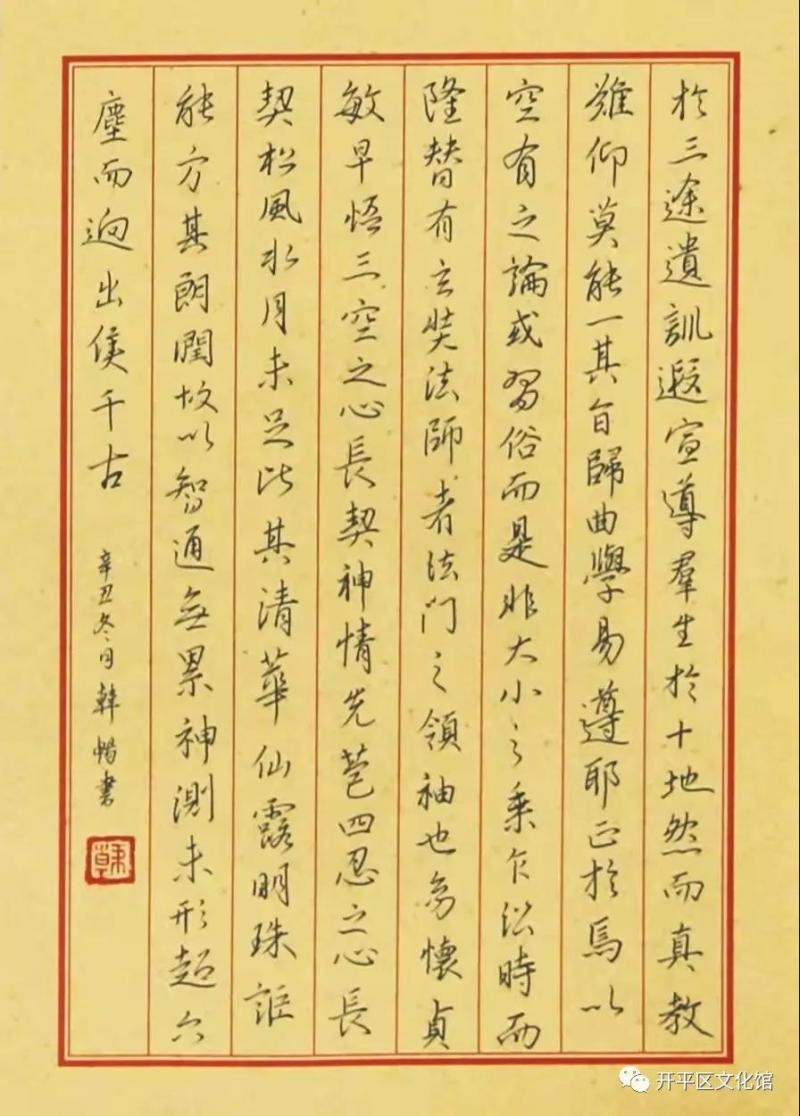 於三途遺訓遐宣導羣生於十地然而真教
難仰莫能一其旨歸曲學易遵耶正於焉以
空有之論或習俗而是非大小之乘乍沿時而
隆替有玄奘法師者法門之領袖也幼懷貞
敏早悟三空之心長契神情先苞四忍之心長
契松風水月未足比其清華仙露明珠詎
能方其朗潤故以智通無累神測未形超六
塵而逈出侯千古
辛丑冬月韓暢書
韓
开平区文化馆